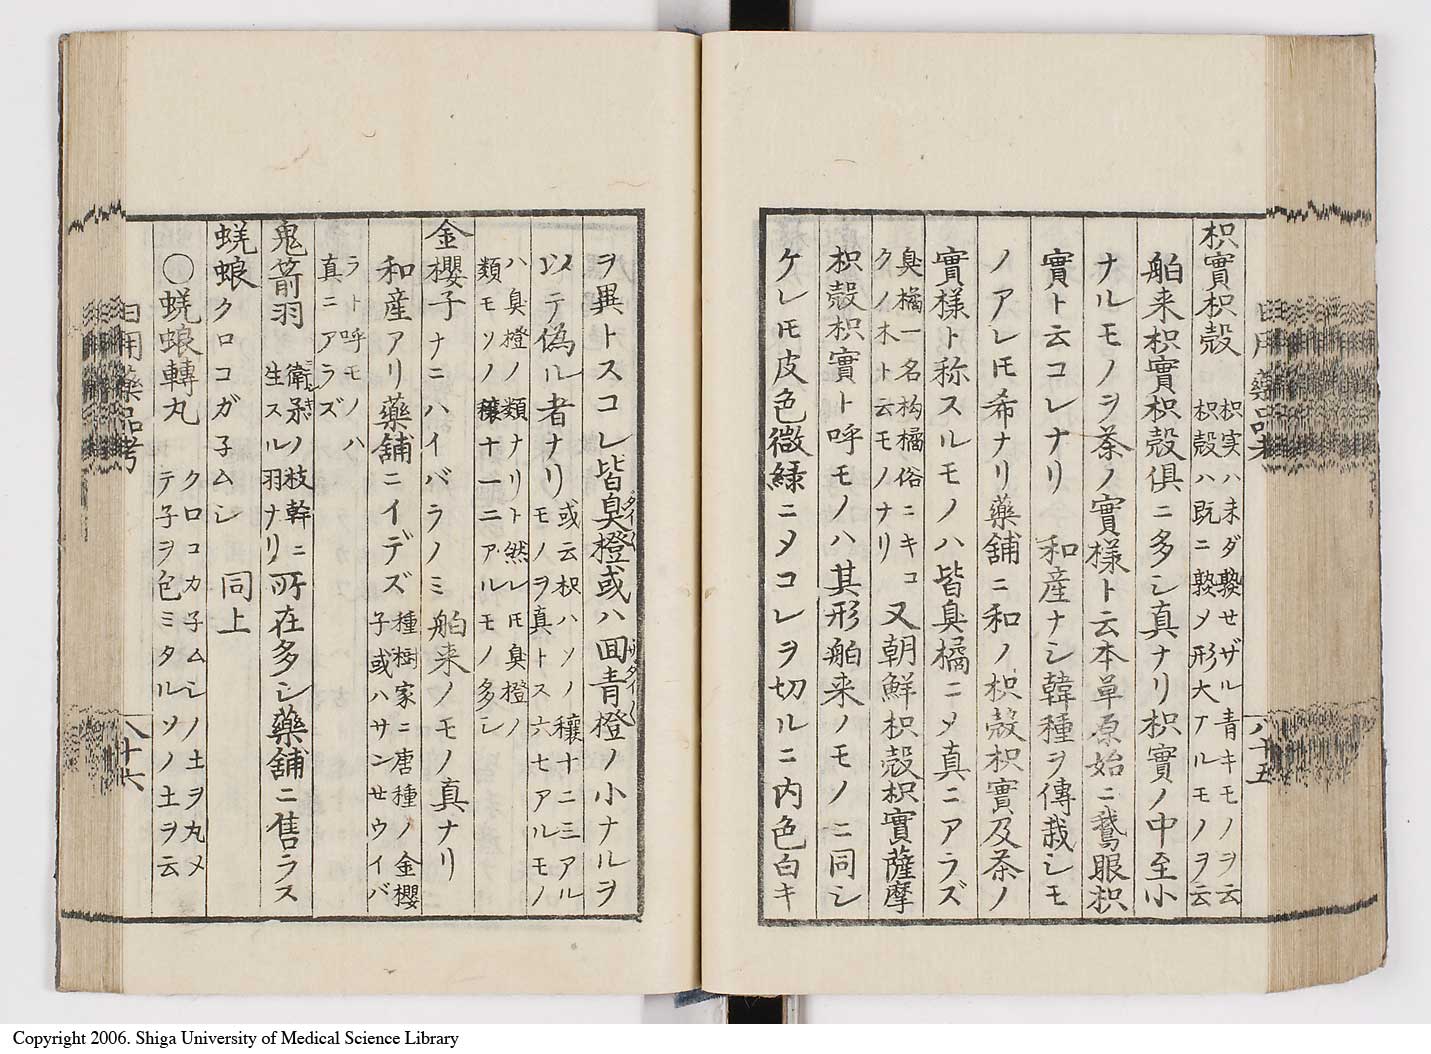 日用藥品考
八十五
枳實枳殼
枳実ハ未ダ熟セザル青キモノヲ云
枳殼ハ既ニ熟メ形大アルモノヲ云
舶来枳實枳殼俱ニ多シ真ナリ枳實ノ中至小
ナルモノヲ茶ノ實樣ト云本草原始ニ鵞眼枳
實ト云コレナリ 和産ナシ韓種ヲ傳栽シモ
ノアレ𪜈希ナリ藥舗ニ和ノ枳殼枳實及茶ノ
實樣ト称スルモノハ皆臭橘ニメ真ニアラズ
臭橘一名枸橘俗ニキコ
クノ木ト云モノナリ
又朝鮮枳殼枳實薩摩
枳殼枳實ト呼モノハ其形舶来ノモノニ同シ
ケレ𪜈皮色微緑ニメコレヲ切ルニ内色白キ
ヲ異トスコレ皆臭橙或ハ回青橙ノ小ナルヲ
以テ偽ル者ナリ
或云枳ハソノ穰十二三アル
モノヲ真トス六七アルモノ
ハ臭橙ノ類ナリト然レ𪜈臭橙ノ
類モソノ穰十一ニアルモノ多シ
金櫻子 ナニハイバラノミ 舶来ノモノ真ナリ
和産アリ藥舗ニイデズ
種樹家ニ唐種ノ金櫻
子或ハサンセウイバ
ラト呼モノハ
真ニアラズ
鬼箭羽
衛矛ノ枝幹ニ
生スル羽ナリ
所在多シ藥舗ニ售ラス
蜣蜋 クロコガ子ムシ 同上
○蜣蜋轉丸
クロコカ子ムシノ土ヲ丸メ
テ子ヲ包ミタルソノ土ヲ云
日用藥品考
八十六
Copyright 2006. Shiga University of Medical Science Library